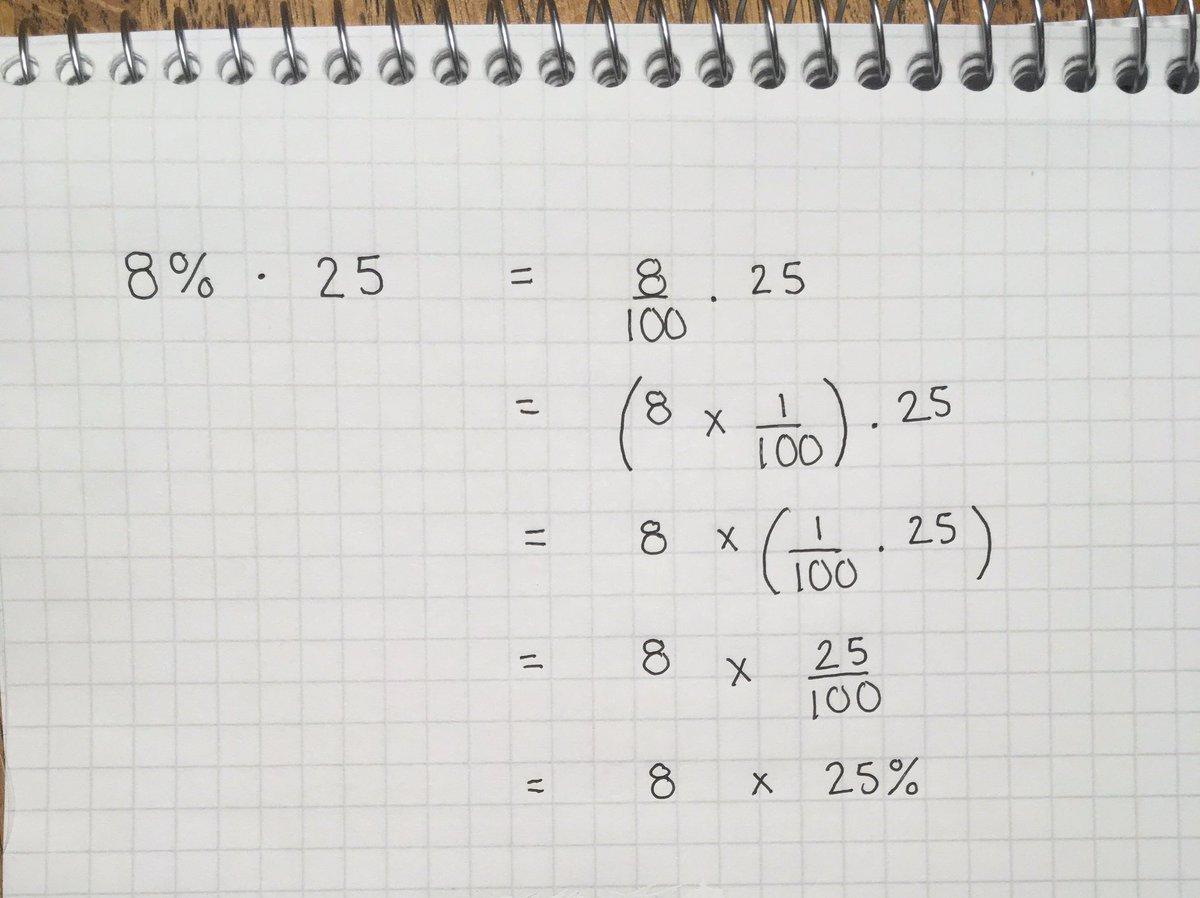 8% · 25 = 8/100 . 25
= (8 x 1/100) . 25
= 8 x (1/100 . 25)
= 8 x 25/100
= 8 x 25%